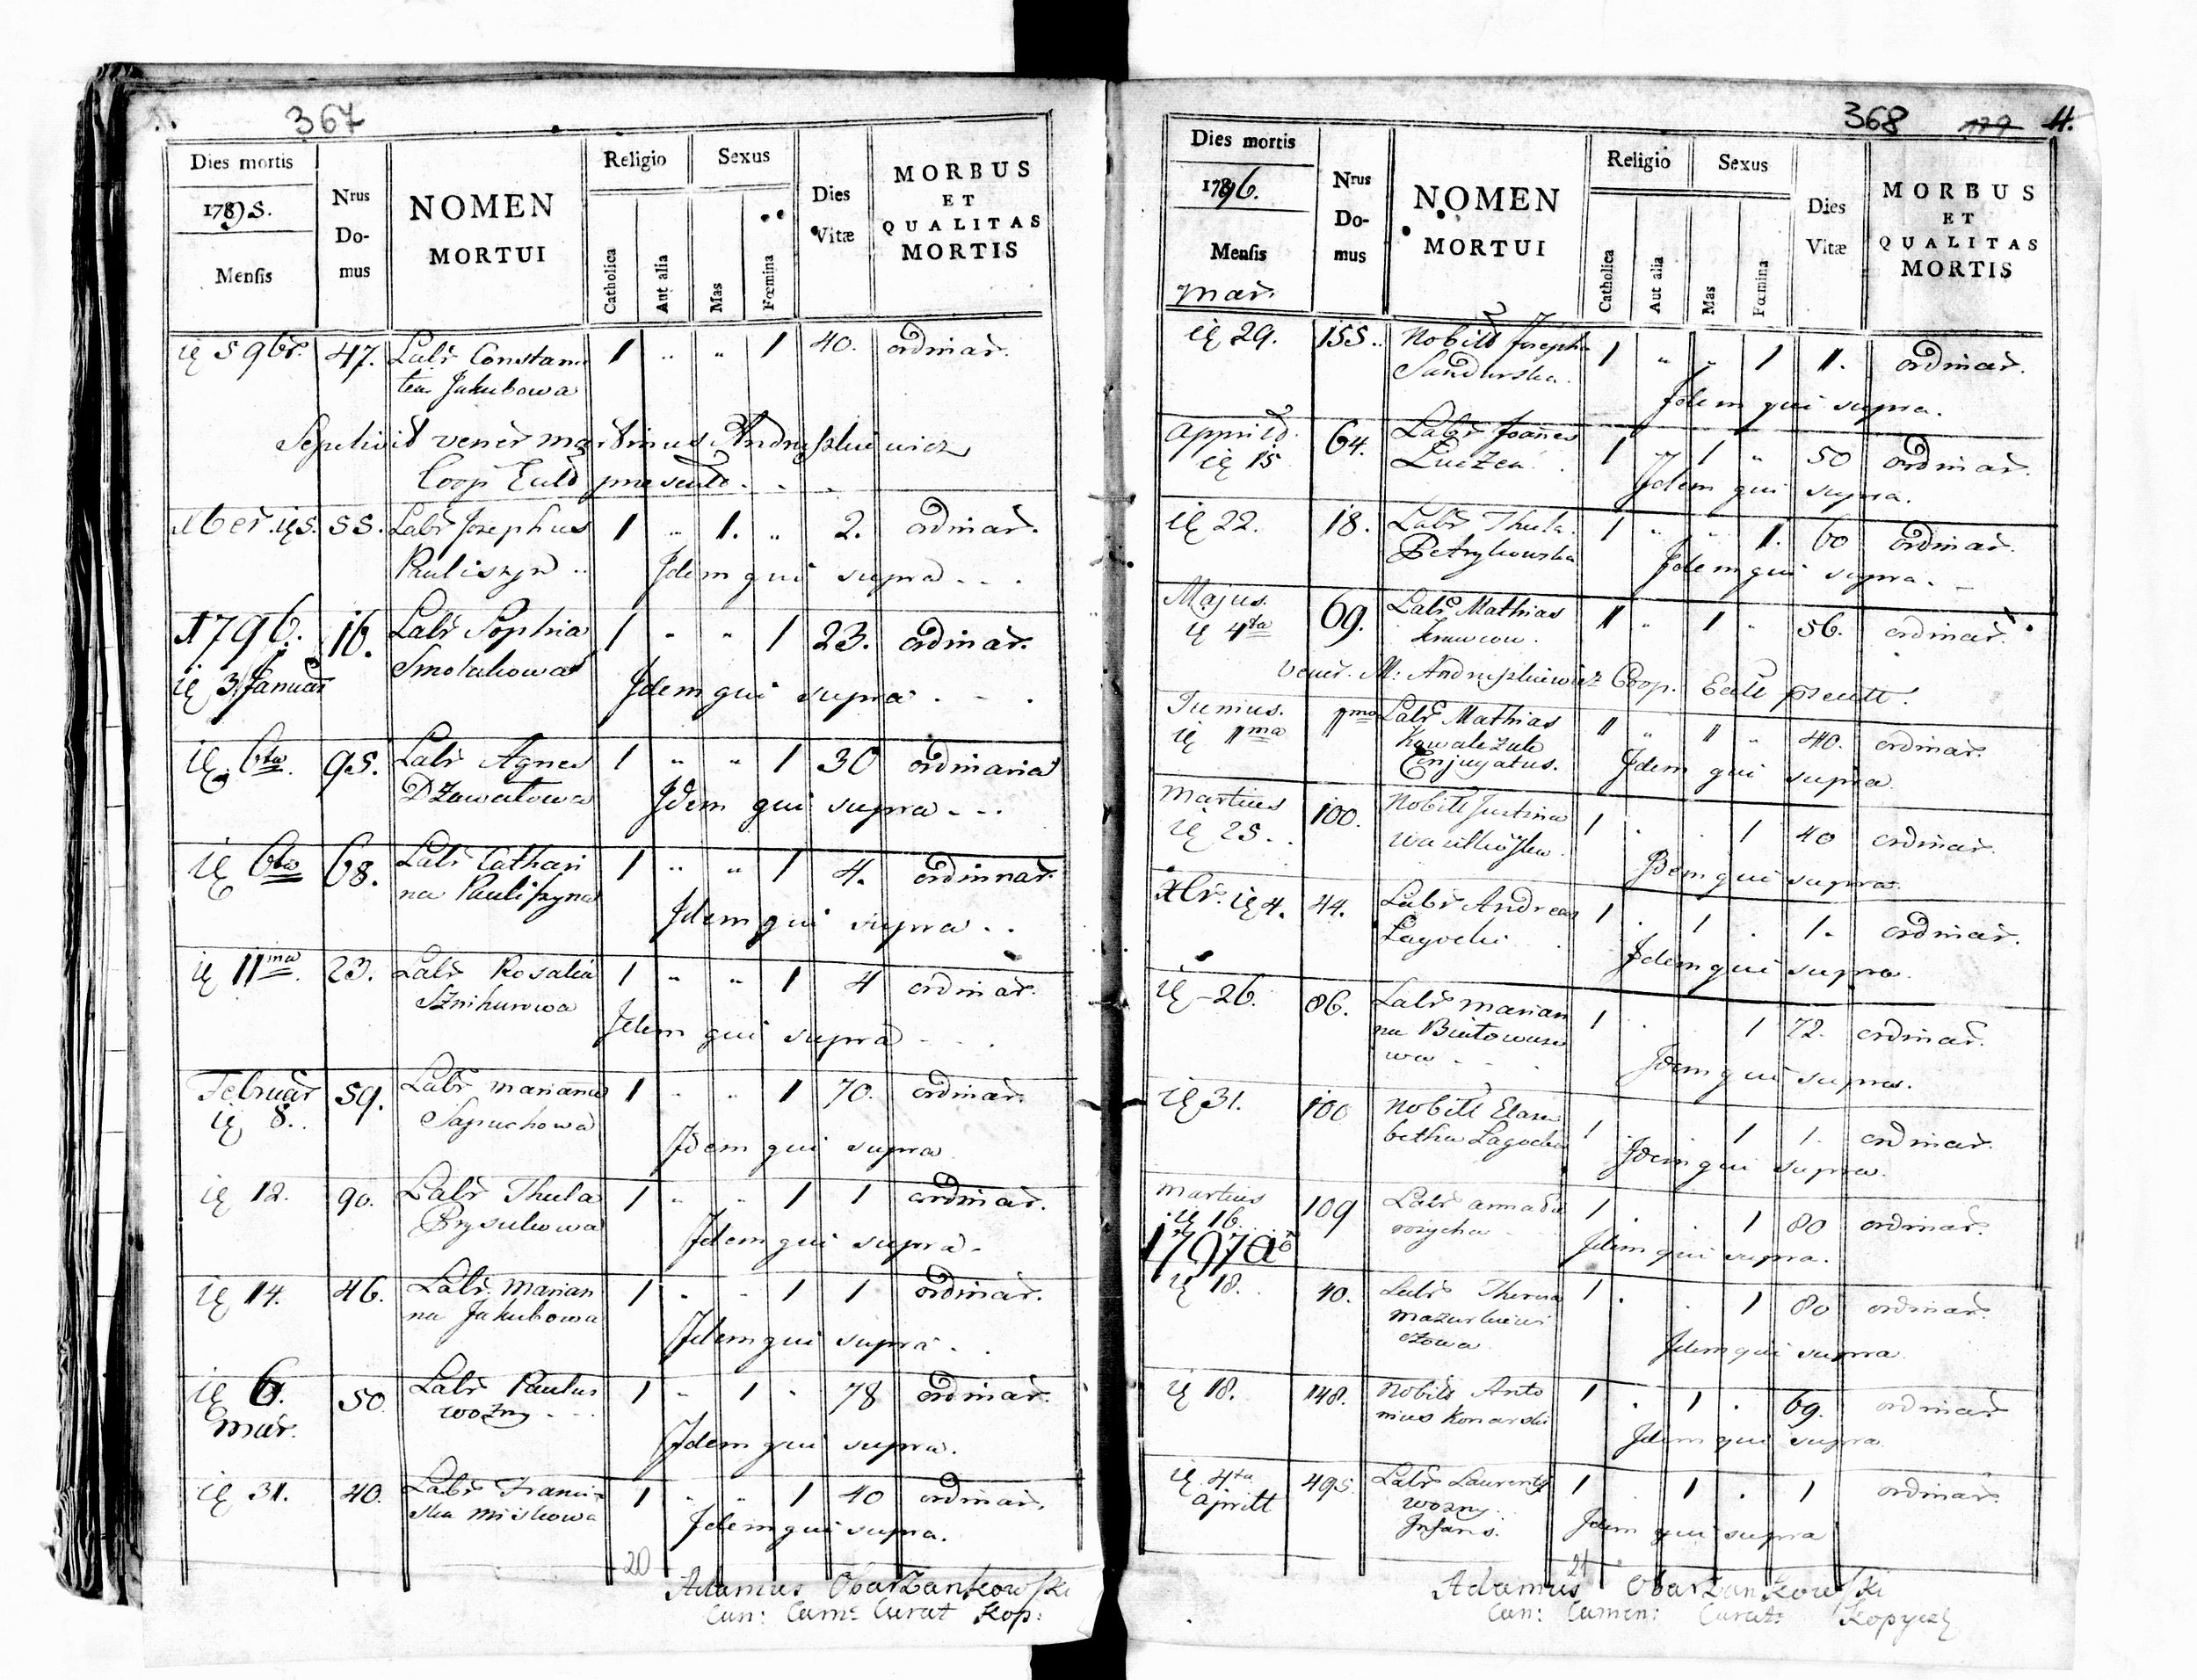 367
Dies mortis
1795.
Mensis
Nrus
Do-
mus
NOMEN
MORTUI
Religio
Catholica
Aut alia
Sexus
Mas
Fœmina
Dies
Vitæ
MORBUS
ET
QUALITAS
MORTIS
5 9br. 47. Labr Constan 1 .. .. 1 40. ordinar.
tea Jakubowa
Sepelivit vener Martinus Andruszkiewicz
Coop Eccld
Xber. 5. 55. Labr Josephus 1 .. 1. .. 2. ordinar.
Pauliszyn .. Idem qui supra . . .
1796. 16. Labr Sophia 1 .. .. 1 23. ordinar.
3 Januar Smolakowa Idem qui supra . . .
6ta. 95. Labr Agnes 1 .. .. 1 30 ordinaria
Dzawatowa Idem qui supra . . .
6ta 68. Labr Cathari 1 .. .. 1 4. ordinnar.
na Pauliszyna Idem qui supra . .
11ma. 23. Labr Rosalia 1 .. .. 1 4 ordinar.
Sznihurowa Idem qui supra . . .
Februar 59. Labr Marianna 1 .. .. 1 70. ordinar.
8. Sapuchowa Idem qui supra
12. 90. Labr Thecla 1 .. .. 1 1 ordinar.
Brysukowa Idem qui supra.
14. 46. Labr. Marian 1 .. .. 1 1 ordinar.
na Jakubowa Idem qui supra . .
6. 50. Labr Paulus 1 .. 1 .. 78 ordinar.
Mar. Wozny . . . Idem qui supra.
31. 40. Labr Francis 1 .. .. 1 40 ordinar.
ska Miskowa Idem qui supra.
20
Adamus Obarzankowski
Can: Came Curat Kop:
368 4.
Dies mortis
1796.
Mensis
Mar.
Nrus
Do-
mus
NOMEN
MORTUI
Religio
Catholica
Aut alia
Sexus
Mas
Fœmina
Dies
Vitæ
MORBUS
ET
QUALITAS
MORTIS
29. 155. Nobils Josepha 1 .. .. 1 1. ordinar.
Sandurska. Idem qui supra.
64. Labr Joanes 1 .. 1 .. 50 ordinar.
15 Idem qui supra.
22. 18. Labr Thecla 1 .. .. 1. 60 ordinar.
Petrykowska Idem qui supra.
Majus. 69. Labr Mathias 1 .. 1 .. 56. ordinar.
4ta
Vener. M: Andruszkiewicz Coop. Eccle
Junius. 1mo Labr Mathias 1 .. 1 .. 40. ordinar.
1ma Kowalczuk
Conjugatus. Idem qui supra
Martius 100. Nobill Justina 1 . . 1 40 ordinar.
25. . Idem qui supra.
Xbr. 4. 44. Labr Andreas 1 . 1 . 1. ordinar.
Lagocki Idem qui supra.
26. 86. Labr Marian 1 . . 1 72. ordinar.
na
wa . . Idem qui supra.
31. 100 Nobill Elasa 1 . . 1 1. ordinar.
betha Lagocka Idem qui supra.
Martius 109 Labr Anna 1 . . 1 80 ordinar.
16. Idem qui supra.
1797 a
18. 40. Labr Theresa 1 . . 1 80 ordinar.
Mazurkiewi
czowa Idem qui supra
18. 148. Nobils Anto 1 . 1 . 69. ordinar
nius Konarski Idem qui supra
4ta 495. Labr Laurenty 1 . 1 . 1 ordinar.
Aprill Wozny.
Infans. Idem qui supra
21
Adamus Obarzankowski
Can: Camen: Curats Kopycz